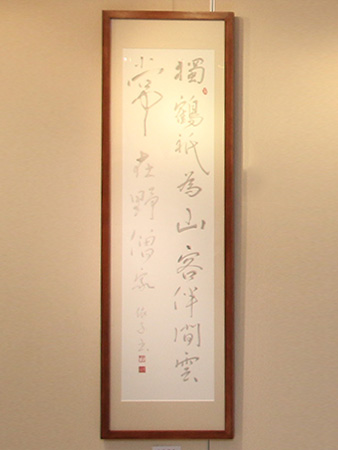 獨鶴祇為山客伴閒雲
常在野僧家